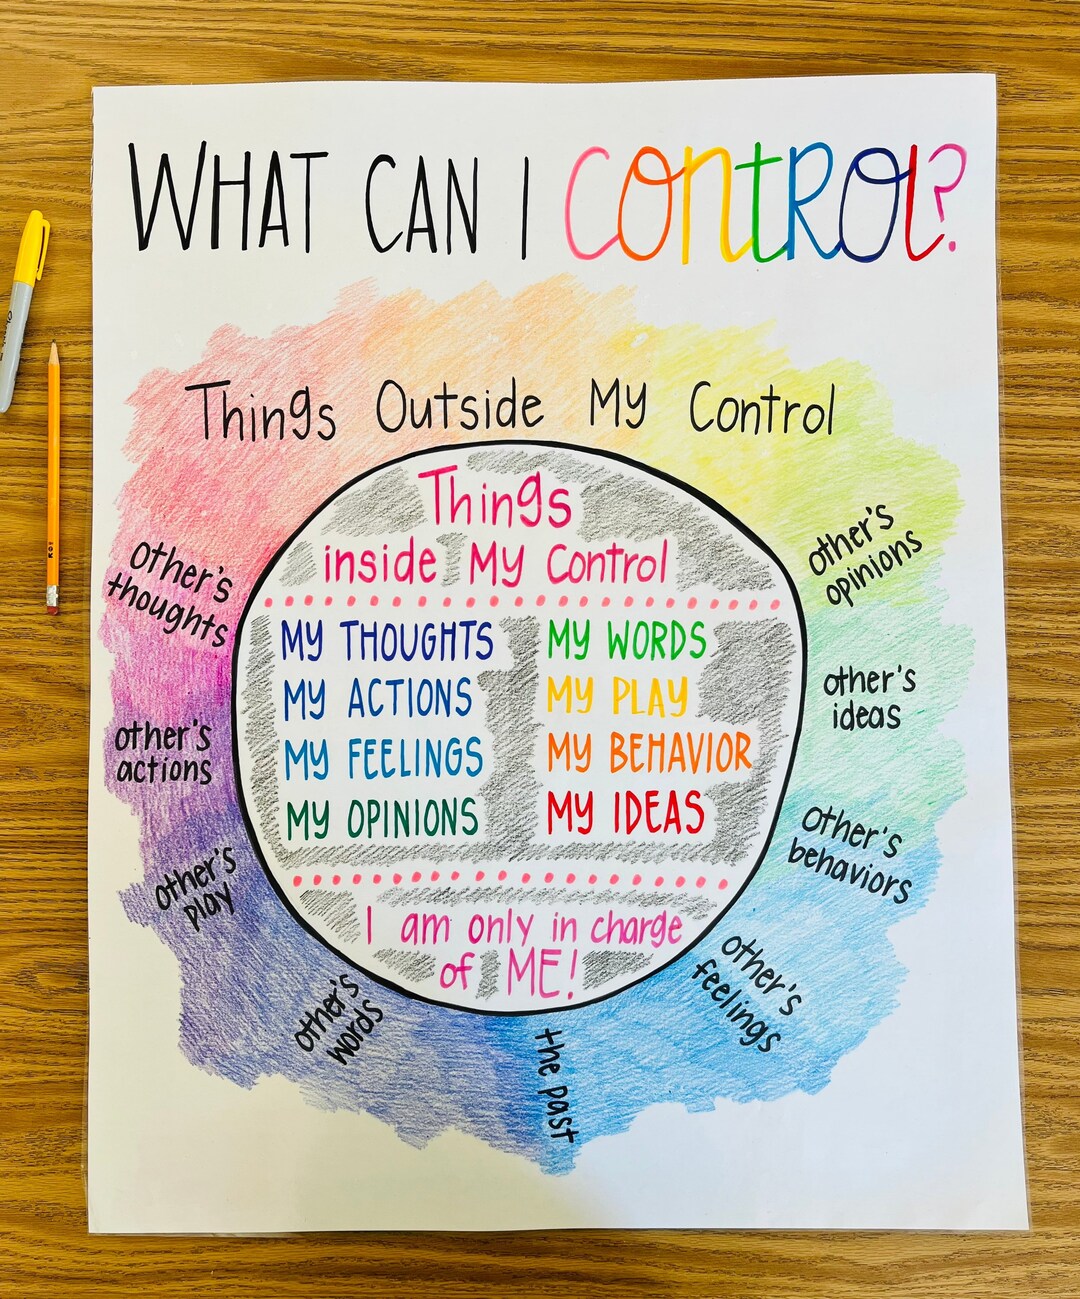 WHAT CAN I CONTROL?
Things Outside My Control
Things
inside My Control
MY THOUGHTS
MY ACTIONS
MY FEELINGS
MY OPINIONS
MY WORDS
MY PLAY
MY BEHAVIOR
MY IDEAS
I am only in charge
of ME!
other's
opinions
other's
ideas
other's
behaviors
other's
feelings
the past
other's
words
other's
play
other's
actions
other's
thoughts